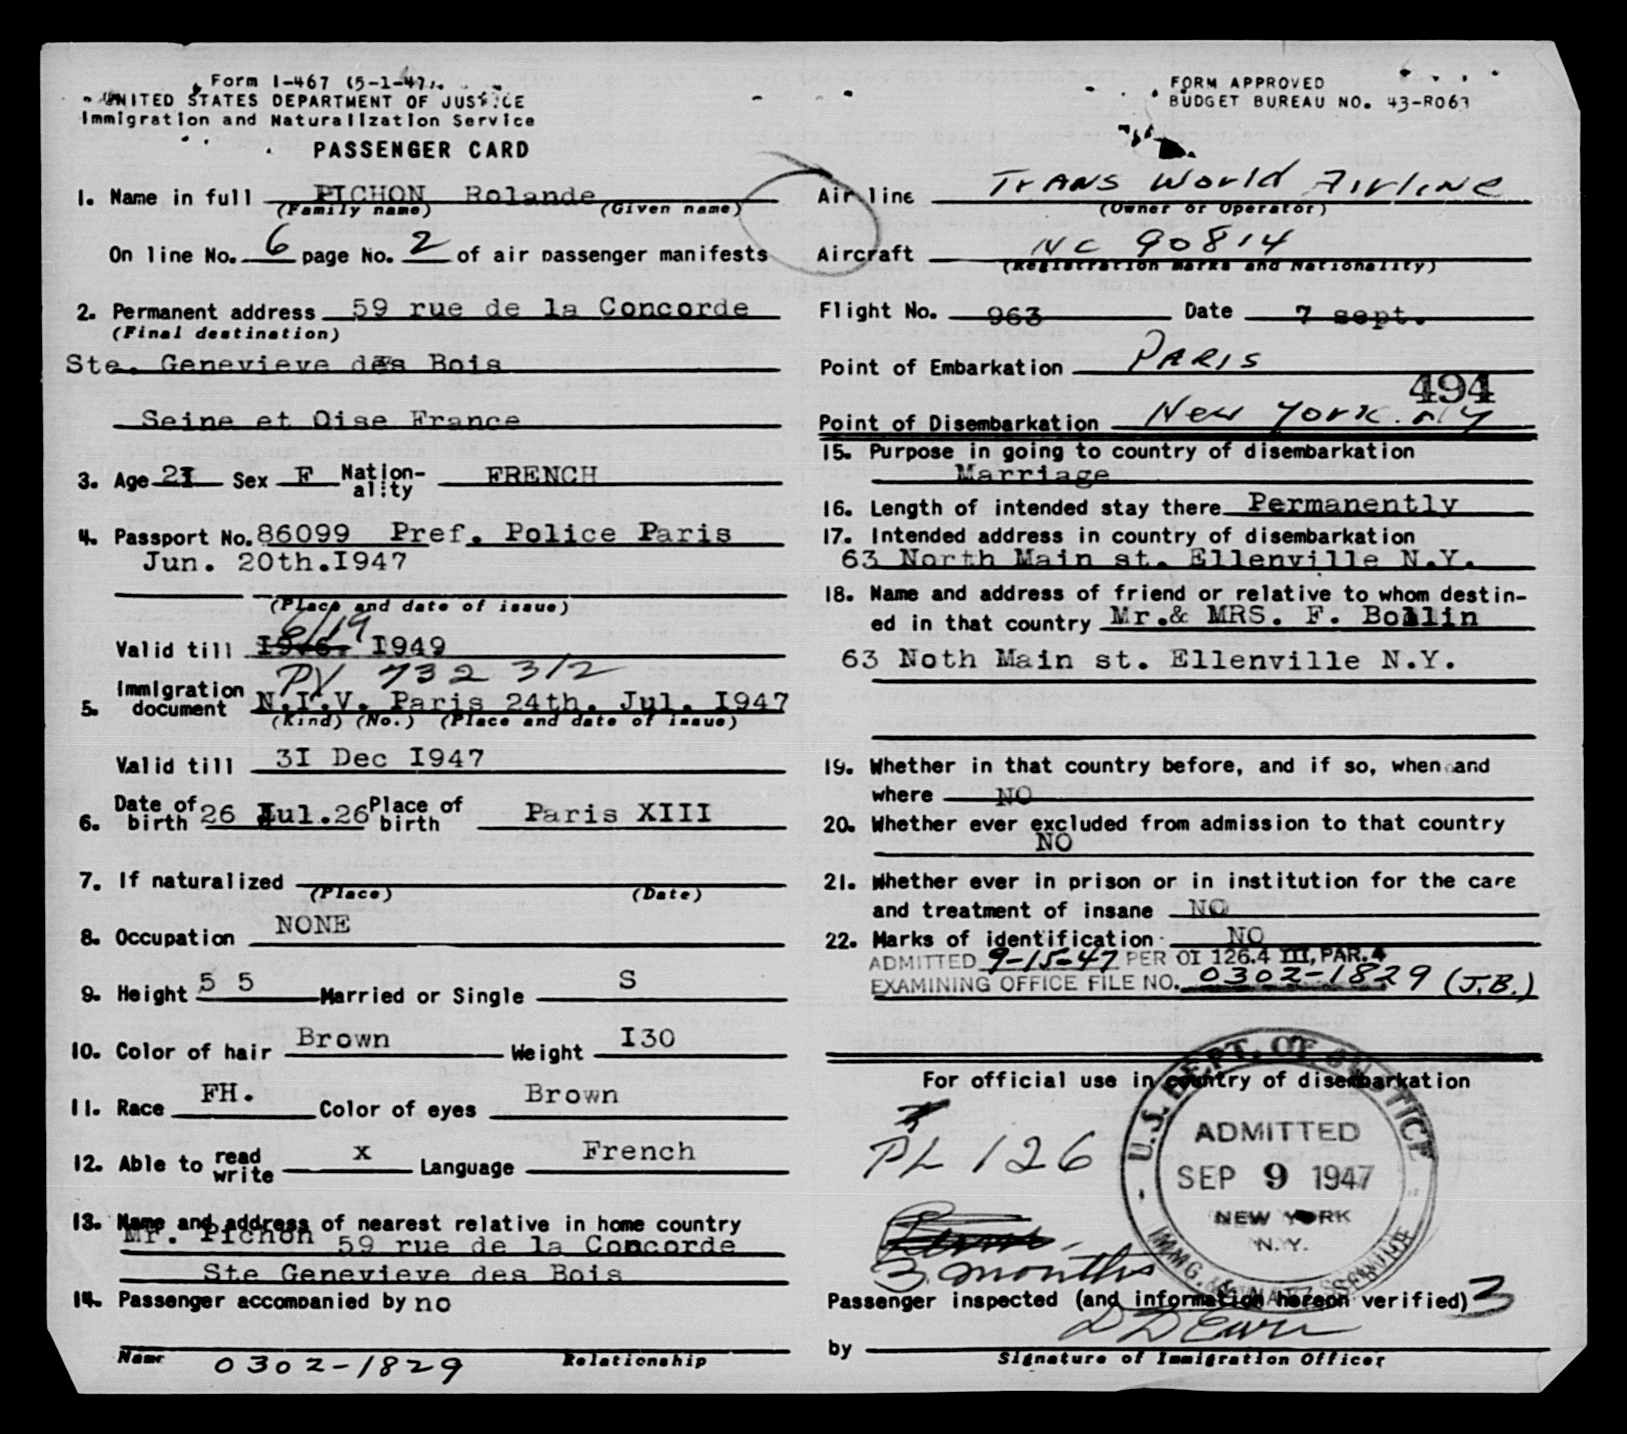 Form I-467 (5-1-47)
UNITED STATES DEPARTMENT OF JUSTICE
Immigration and Naturalization Service
PASSENGER CARD
FORM APPROVED
BUDGET BUREAU NO. 43-R063
1. Name in full PICHON Rolande
(Family name) (Given name)
On line No. 6 page No. 2 of air passenger manifests
2. Permanent address 59 rue de la Concorde
(Final destination)
Ste. Genevieve des Bois
Seine et Oise France
3. Age 21 Sex F Nation-ality FRENCH
4. Passport No. 86099 Pref. Police Paris
Jun. 20th.I947
(Place and date of issue)
6/19
Valid till I949
PV 732 312
5. Immigration document N.I.V. Paris 24th. Jul. I947
(Kind) (No.) (Place and date of issue)
Valid till 3I Dec I947
6. Date of birth 26 Jul.26 Place of birth Paris XIII
7. If naturalized
(Place) (Date)
8. Occupation NONE
9. Height 5 5 Married or Single S
10. Color of hair Brown Weight I30
11. Race FH. Color of eyes Brown
12. Able to read write x Language French
13. Name and address of nearest relative in home country
Mr. Pichon 59 rue de la Concorde
Ste Genevieve des Bois
14. Passenger accompanied by no
Name Relationship
0302-1829
Air line Trans World Airline
(Owner or Operator)
Aircraft NC 90814
(Registration marks and Nationality)
Flight No. 963 Date 7 sept.
Point of Embarkation PARIS
494
Point of Disembarkation New York. NY
15. Purpose in going to country of disembarkation
Marriage
16. Length of intended stay there Permanently
17. Intended address in country of disembarkation
63 North Main st. Ellenville N.Y.
18. Name and address of friend or relative to whom destin-
ed in that country Mr.& MRS. F. Bollin
63 Noth Main st. Ellenville N.Y.
19. Whether in that country before, and if so, when and
where NO
20. Whether ever excluded from admission to that country
NO
21. Whether ever in prison or in institution for the care
and treatment of insane NO
22. Marks of identification NO
ADMITTED 9-15-47 PER OI 126.4 III, PAR. 4
EXAMINING OFFICE FILE NO. 0302-1829 (J.B.)
For official use in country of disembarkation
PL 126
U.S. DEPT. OF JUSTICE
ADMITTED
SEP 9 1947
NEW YORK
N.Y.
IMMIG. & NATZ. SERVICE
3 months
Passenger inspected (and information hereon verified) 3
by
Signature of Immigration Officer